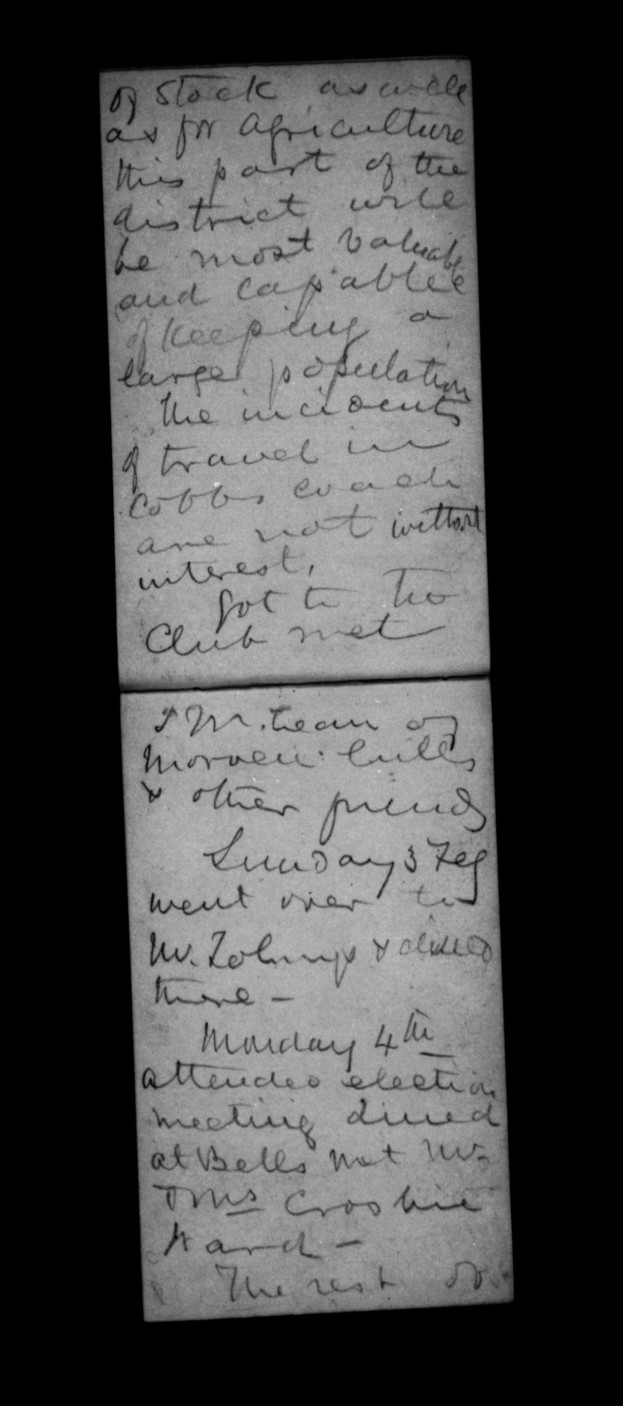 of Stock as well
as for agriculture
this part of the
district will
be most valuable
and capable
of keeping a
large population
The incidents
of travel in
Cobbs coach
are not without
interest.
Got to the
Club met
McLean of
Morven hills
& other friends
Sunday 3 Feb
went over to
Mr. & dined
there -
Monday 4th
attended election
meeting dined
at Bells met Mr
& Mrs Crosbie
Ward -
The rest of